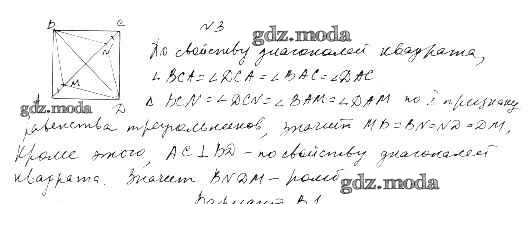 N 3
B C
gdz.moda
По свойству диагоналей квадрата,
N
∠ BCA = ∠ DCA = ∠ BAC = ∠ DAC
M
gdz.moda
△ BCN = △ DCN = △ BAM = △ DAM по I признаку
D
равенства треугольников, значит MB = BN = ND = DM,
Кроме этого, AC ⊥ BD - по свойству диагоналей
квадрата. Значит BNDM - ромб
gdz.moda
Вариант В1